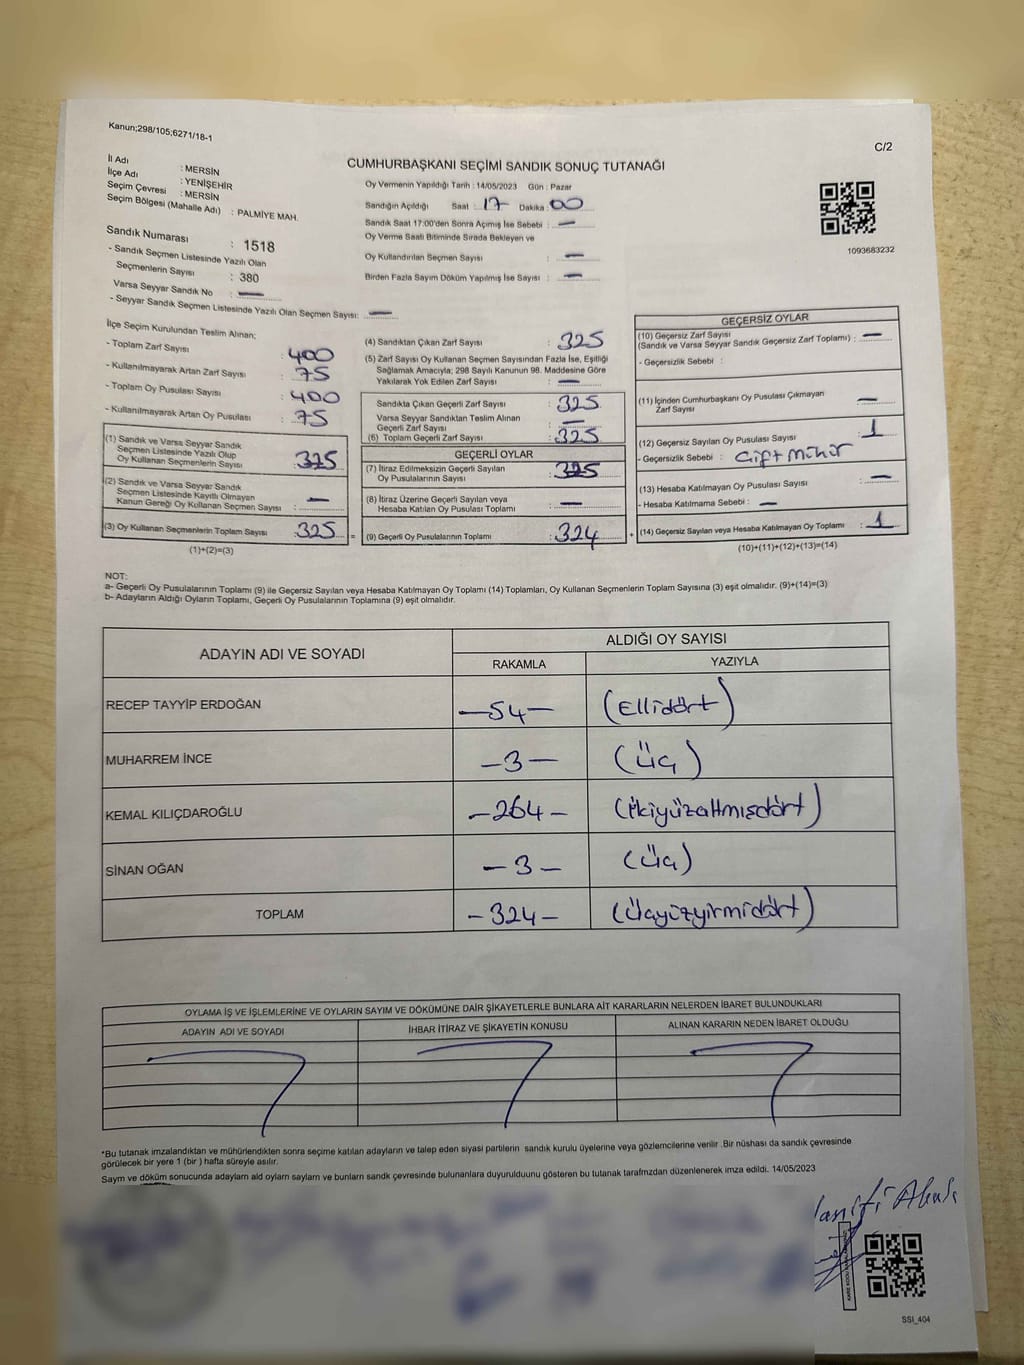 Kanun;298/105;6271/18-1
C/2
CUMHURBAŞKANI SEÇİMİ SANDIK SONUÇ TUTANAĞI
İl Adı : MERSİN
İlçe Adı : YENİŞEHİR
Seçim Çevresi : MERSİN
Seçim Bölgesi (Mahalle Adı) : PALMİYE MAH.
Sandık Numarası : 1518
- Sandık Seçmen Listesinde Yazılı Olan
Seçmenlerin Sayısı : 380
Varsa Seyyar Sandık No : —
- Seyyar Sandık Seçmen Listesinde Yazılı Olan Seçmen Sayısı: —
Oy Vermenin Yapıldığı Tarih : 14/05/2023 Gün : Pazar
Sandığın Açıldığı Saat : 17 Dakika : 00
Sandık Saat 17:00'den Sonra Açımış İse Sebebi : —
Oy Verme Saati Bitiminde Sırada Bekleyen ve
Oy Kullandırılan Seçmen Sayısı : —
Birden Fazla Sayım Döküm Yapılmış İse Sayısı : —
1093683232
İlçe Seçim Kurulundan Teslim Alınan;
- Toplam Zarf Sayısı : 400
- Kullanılmayarak Artan Zarf Sayısı : 75
- Toplam Oy Pusulası Sayısı : 400
- Kullanılmayarak Artan Oy Pusulası : 75
(1) Sandık ve Varsa Seyyar Sandık
Seçmen Listesinde Yazılı Olup
Oy Kullanan Seçmenlerin Sayısı : 325
(2) Sandık ve Varsa Seyyar Sandık
Seçmen Listesinde Kayıtlı Olmayan
Kanun Gereği Oy Kullanan Seçmen Sayısı : —
(3) Oy Kullanan Seçmenlerin Toplam Sayısı : 325
(1)+(2)=(3)
(4) Sandıktan Çıkan Zarf Sayısı : 325
(5) Zarf Sayısı Oy Kullanan Seçmen Sayısından Fazla İse, Eşitliği
Sağlamak Amacıyla; 298 Sayılı Kanunun 98. Maddesine Göre
Yakılarak Yok Edilen Zarf Sayısı : —
Sandıkta Çıkan Geçerli Zarf Sayısı : 325
Varsa Seyyar Sandıktan Teslim Alınan
Geçerli Zarf Sayısı : —
(6) Toplam Geçerli Zarf Sayısı : 325
GEÇERLİ OYLAR
(7) İtiraz Edilmeksizin Geçerli Sayılan
Oy Pusulalarının Sayısı : 325
(8) İtiraz Üzerine Geçerli Sayılan veya
Hesaba Katılan Oy Pusulası Toplamı : —
= (9) Geçerli Oy Pusulalarının Toplamı : 324 +
GEÇERSİZ OYLAR
(10) Geçersiz Zarf Sayısı
(Sandık ve Varsa Seyyar Sandık Geçersiz Zarf Toplamı) : —
- Geçersizlik Sebebi :
(11) İçinden Cumhurbaşkanı Oy Pusulası Çıkmayan
Zarf Sayısı : —
(12) Geçersiz Sayılan Oy Pusulası Sayısı : 1
- Geçersizlik Sebebi : Çift Mühür
(13) Hesaba Katılmayan Oy Pusulası Sayısı : —
- Hesaba Katılmama Sebebi : —
(14) Geçersiz Sayılan veya Hesaba Katılmayan Oy Toplamı : 1
(10)+(11)+(12)+(13)=(14)
NOT:
a- Geçerli Oy Pusulalarının Toplamı (9) ile Geçersiz Sayılan veya Hesaba Katılmayan Oy Toplamı (14) Toplamları, Oy Kullanan Seçmenlerin Toplam Sayısına (3) eşit olmalıdır. (9)+(14)=(3)
b- Adayların Aldığı Oyların Toplamı, Geçerli Oy Pusulalarının Toplamına (9) eşit olmalıdır.
ADAYIN ADI VE SOYADI ALDIĞI OY SAYISI
RAKAMLA YAZIYLA
RECEP TAYYİP ERDOĞAN —54— (Ellidört)
MUHARREM İNCE —3— (Üç)
KEMAL KILIÇDAROĞLU —264— (İkiyüzaltmışdört)
SİNAN OĞAN —3— (Üç)
TOPLAM —324— (Üçyüzyirmidört)
OYLAMA İŞ VE İŞLEMLERİNE VE OYLARIN SAYIM VE DÖKÜMÜNE DAİR ŞİKAYETLERLE BUNLARA AİT KARARLARIN NELERDEN İBARET BULUNDUKLARI
ADAYIN ADI VE SOYADI İHBAR İTİRAZ VE ŞİKAYETİN KONUSU ALINAN KARARIN NEDEN İBARET OLDUĞU
*Bu tutanak imzalandıktan ve mühürlendikten sonra seçime katılan adayların ve talep eden siyasi partilerin sandık kurulu üyelerine veya gözlemcilerine verilir .Bir nüshası da sandık çevresinde
görülecek bir yere 1 (bir ) hafta süreyle asılır.
Sayım ve döküm sonucunda adayların ald oyların sayların ve bunların sandk çevresinde bulunanlara duyurulduunu gösteren bu tutanak tarafmzdan düzenlenerek imza edildi. 14/05/2023
SSI_404